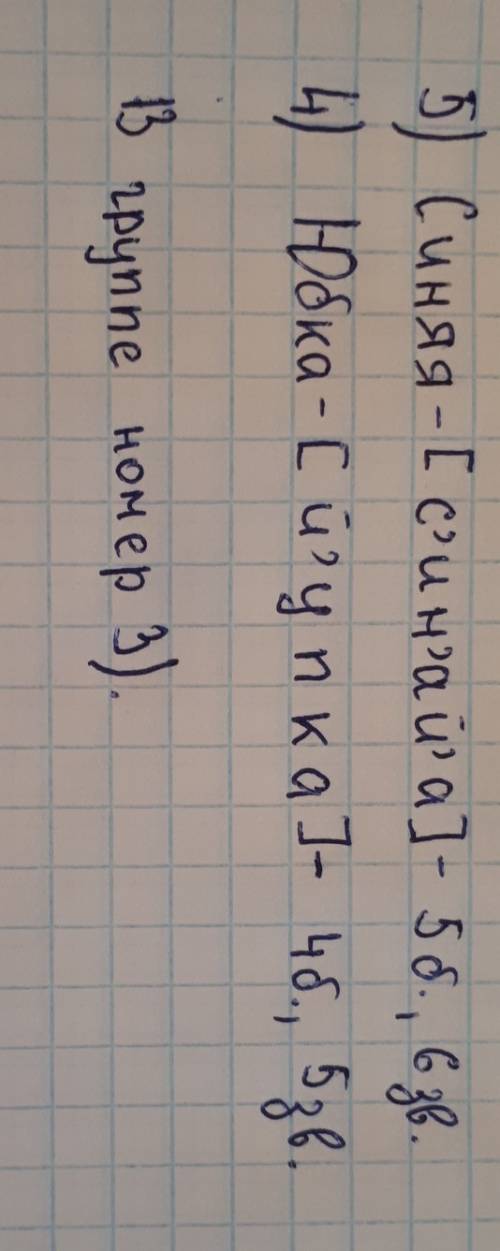 5) Синяя - [с'ин'ай'а] - 5б., 6зв.
4) Юбка - [й'упка] - 4б., 5зв.
В группе номер 3).